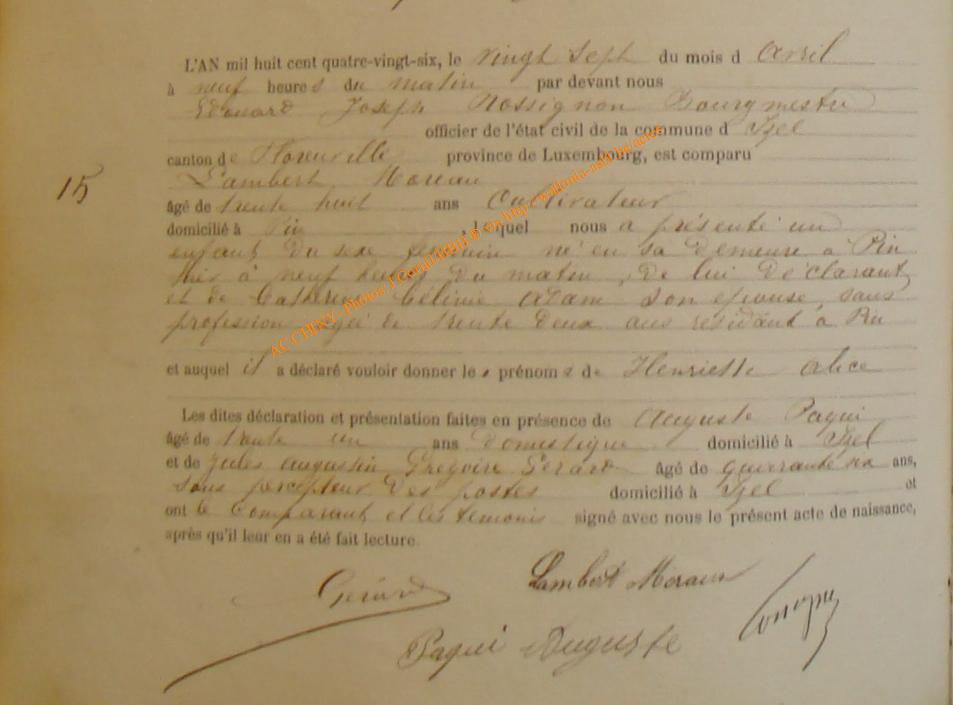 L'AN mil huit cent quatre-vingt-six, le vingt sept du mois d avril
à neuf heures du matin par devant nous
Edouard Joseph Rossignon Bourgmestre
officier de l'état civil de la commune d Izel
canton de Florenville province de Luxembourg, est comparu
Lambert Moreau
15
âgé de trente huit ans Cultivateur
domicilié à Pin , lequel nous a présenté un
enfant du sexe féminin né en sa demeure à Pin
hier à neuf heures du matin, de lui déclarant
et de Catherine Célinie Adam son épouse, sans
profession agée de trente deux ans résidant à Pin
et auquel il a déclaré vouloir donner les prénoms de Henriette Alice
Les dites déclaration et présentation faites en présence de Auguste Paqui
âgé de trente un ans Domestique domicilié à Izel
et de Jules Augustin Grégoire Gérard âgé de quarante six ans,
sous percepteur des postes domicilié à Izel et
ont le comparant et les témoins signé avec nous le présent acte de naissance,
après qu'il leur en a été fait lecture.
Gérard Lambert Moraux
Paqui Auguste
AC CHINY - Photos J.